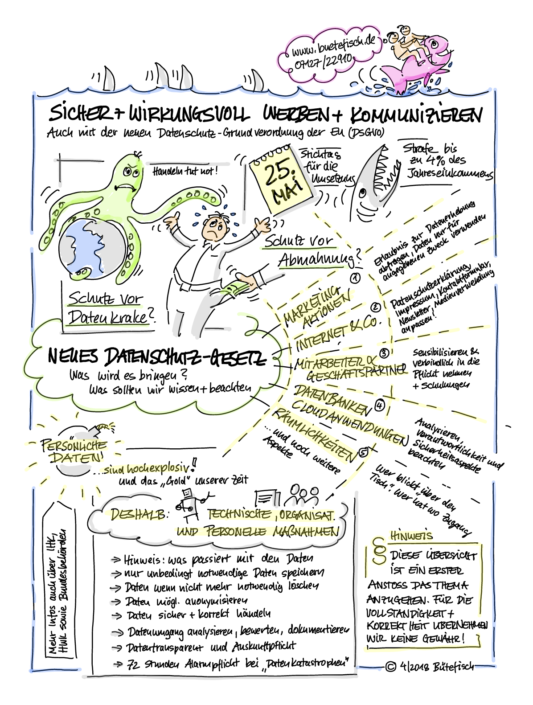 www.buetefisch.de
07127/22910
SICHER + WIRKUNGSVOLL WERBEN + KOMMUNIZIEREN
Auch mit der neuen Datenschutz-Grundverordnung der EU (DSGVO)
Handeln tut not!
25.
MAI
Stichtag
für die
Umsetzung
Strafe bis
zu 4% des
Jahreseinkommens
Schutz vor
Datenkrake?
Schutz vor
Abmahnung?
NEUES DATENSCHUTZ-GESETZ
Was wird es bringen?
Was sollten wir wissen + beachten
1
MARKETING
AKTIONEN
Erlaubnis zur Datenerhebung
abfragen, Daten nur für
angegebenen Zweck verwenden
2
INTERNET & CO.
Datenschutzerklärung,
Impressum, Kontaktformular,
Newsletter, Medienverwendung
anpassen!
3
MITARBEITER &
GESCHÄFTSPARTNER
Sensibilisieren &
verbindlich in die
Pflicht nehmen
+ Schulungen
4
DATENBANKEN
CLOUDANWENDUNGEN
Analysieren,
Verantwortlichkeit und
Sicherheitsaspekte
beachten
5
RÄUMLICHKEITEN
... und noch weitere
Aspekte
Wer blickt "über den
Tisch", Wer hat wo Zugang
PERSÖNLICHE
DATEN
...sind hochexplosiv!
und das „Gold" unserer Zeit
DESHALB:
TECHNISCHE, ORGANISAT.
UND PERSONELLE MAßNAHMEN
→ Hinweis: was passiert mit den Daten
→ nur unbedingt notwendige Daten speichern
→ Daten wenn nicht mehr notwendig löschen
→ Daten mögl. anonymisieren
→ Daten sicher + korrekt händeln
→ Datenumgang analysieren, bewerten, dokumentieren
→ Datentransparent und Auskunftpflicht
→ 72 Stunden Alarmpflicht bei „Datenkatastrophen"
Mehr Infos auch über IHK,
HWK sowie Bundesbehörden
§
HINWEIS
DIESE ÜBERSICHT
IST EIN ERSTER
ANSTOSS DAS THEMA
ANZUGEHEN. FÜR DIE
VOLLSTÄNDIGKEIT +
KORREKTHEIT ÜBERNEHMEN
WIR KEINE GEWÄHR!
© 4/2018 Bütefisch